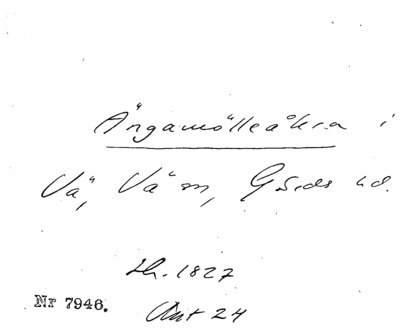 Ängamölleåkra i
Vä, Vä sn, Gärds hd.
Sh. 1827
Nr 7946.
Akt 24